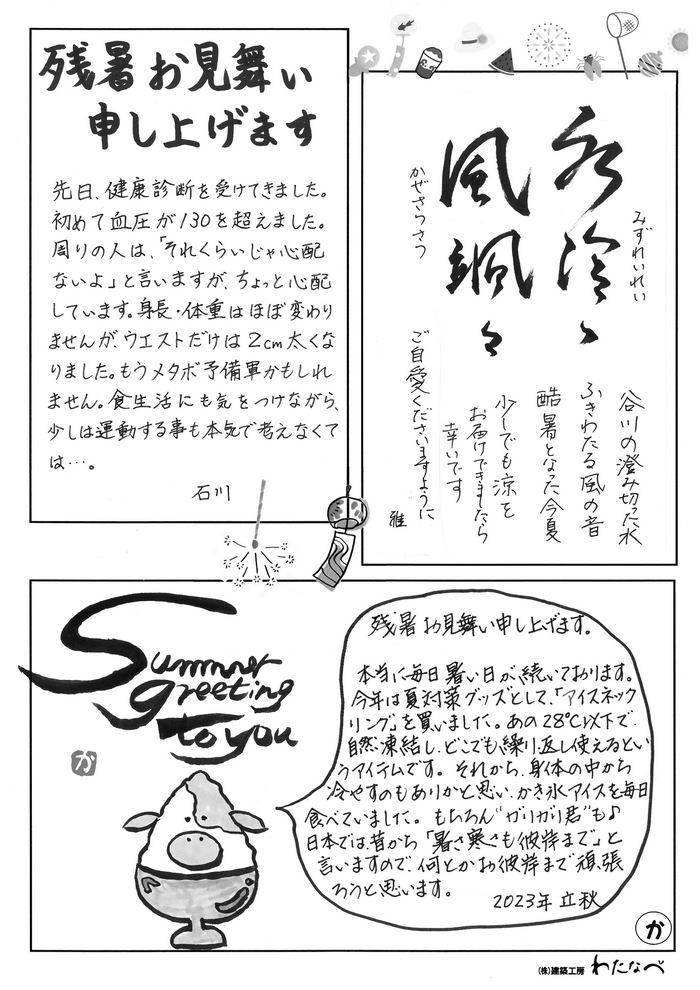 残暑お見舞い
申し上げます
先日、健康診断を受けてきました。
初めて血圧が130を超えました。
周りの人は、「それくらいじゃ心配
ないよ」と言いますが、ちょっと心配
しています。身長・体重はほぼ変わり
ませんが、ウエストだけは2cm太くな
りました。もうメタボ予備軍かもしれ
ません。食生活にも気をつけながら、
少しは運動する事も本気で考えなくて
は…。
石川
水冷々
みずれいれい
風颯々
かぜさっさつ
谷川の澄み切った水
ふきわたる風の音
酷暑となった今夏
少しでも涼を
お届けできましたら
幸いです
ご自愛くださいますように
雅
Summer
greeting
to you
か
残暑お見舞い申し上げます。
本当に毎日暑い日が続いております。
今年は夏対策グッズとして、「アイスネック
リング」を買いました。あの28℃以下で
自然凍結し、どこでも繰り返し使えるとい
うアイテムです。それから、身体の中から
冷やすのもありかと思い、かき氷アイスを毎日
食べていました。もちろん“ガリガリ君”も♪
日本では、昔から「暑さ寒さも彼岸まで」と
言いますので、何とかお彼岸まで頑張
ろうと思います。
2023年 立秋
か
(株)建築工房 わたなべ